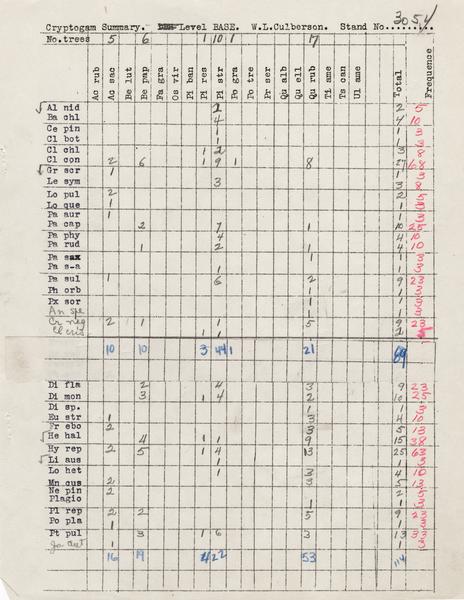 Cryptogam Summary. Level BASE. W.L.Culberson. Stand No. 3054
No.trees 5 6 1 10 1 17
Ac rub Ac sac Be lut Be pap Fa gra Os vir Pi ban Pi res Pi str Po gra Po tre Pr ser Qu alb Qu ell Qu rub Ti ame Ts can Ul ame Total Frequence
Al nid 2 2 5
Ba chl 4 4 10
Ce pin 1 1 3
Cl bot 1 1 3
Cl chl 1 2 3 8
Cl con 2 6 1 9 1 8 27 68
Gr scr 1 1 3
Le sym 3 3 8
Lo pul 2 2 5
Lo que 1 1 3
Pa aur 1 1 3
Pa cap 2 7 1 10 25
Pa phy 4 4 10
Pa rud 1 2 1 4 10
Pa sax 1 3
Pa s-a 1 1 3
Pa sul 1 6 2 9 23
Ph orb 1 1 3
Px sor 1 1 3
An spe 1 1 3
Cr neg 2 1 1 5 9 23
Cl cris 1 1 2
10 10 3 44 1 21 69
Di fla 2 4 3 9 23
Di mon 3 1 4 2 10 25
Di sp. 1 1 3
Eu str 1 3 4 10
Fr ebo 2 3 5 13
He hal 4 1 1 9 15 38
Hy rep 2 5 1 4 13 25 63
Li aus 1 1 3
Lo het 1 3 4 10
Mn cus 2 3 5 13
Ne pin 2 2 5
Plagio 1 1 3
Pl rep 2 2 5 9 23
Po pla 1 1 3
Pt pul 3 1 6 3 13 33
1 1 3
16 19 4 22 53 114